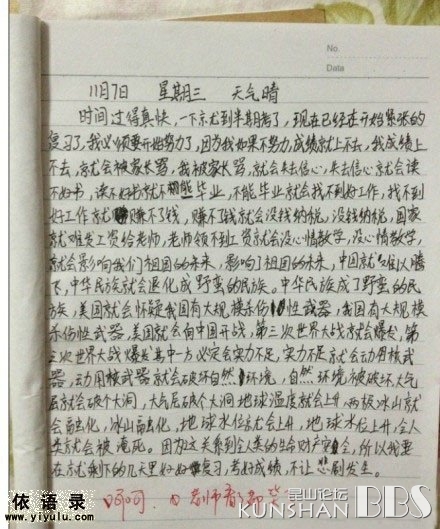 No.
Date
11月7日 星期三 天气晴
时间过得真快,一下京尤到半期考了,现在已经在开始紧张的
复习了,我必须要开始努力了,因为我如果不努力,成绩就上不去,我成绩上
不去,就会被家长骂,我被家长骂,就会失去信心,失去信心就会读
不好书,读不好书就不能毕业,不能毕业就会找不到好工作,找不到
好工作就赚不了钱,赚不了钱就会没钱纳税,没钱纳税,国家
就难发工资给老师,老师领不到工资就会没心情教学,没心情教学,
就会影响我们祖国的未来,影响了祖国的未来,中国就难以腾
飞,中华民族就会退化成野蛮的民族。中华民族成了野蛮的民
族,美国就会怀疑我国有大规模杀伤性武器,我国有大规模
杀伤性武器,美国就会向中国开战,第三次世界大战就会爆发,第
三次世界大战爆发其中一方必定会实力不足,实力不足就会动用核武
器,动用核武器就会破坏自然环境,自然环境被破坏大气
层就会破个大洞,大气层破个大洞地球温度就会上升,两极冰山就
会融化,冰山融化,地球水位就会上升,地球水位上升,全人
类就会被淹死。因为这关系到全人类的生命财产安全,所以我要
在就剩下的几天里好好复习,考好成绩,不让悲剧发生。
呵呵 老师看了都
依语录
www.yiyulu.com
昆山论坛
KUNSHAN BBS